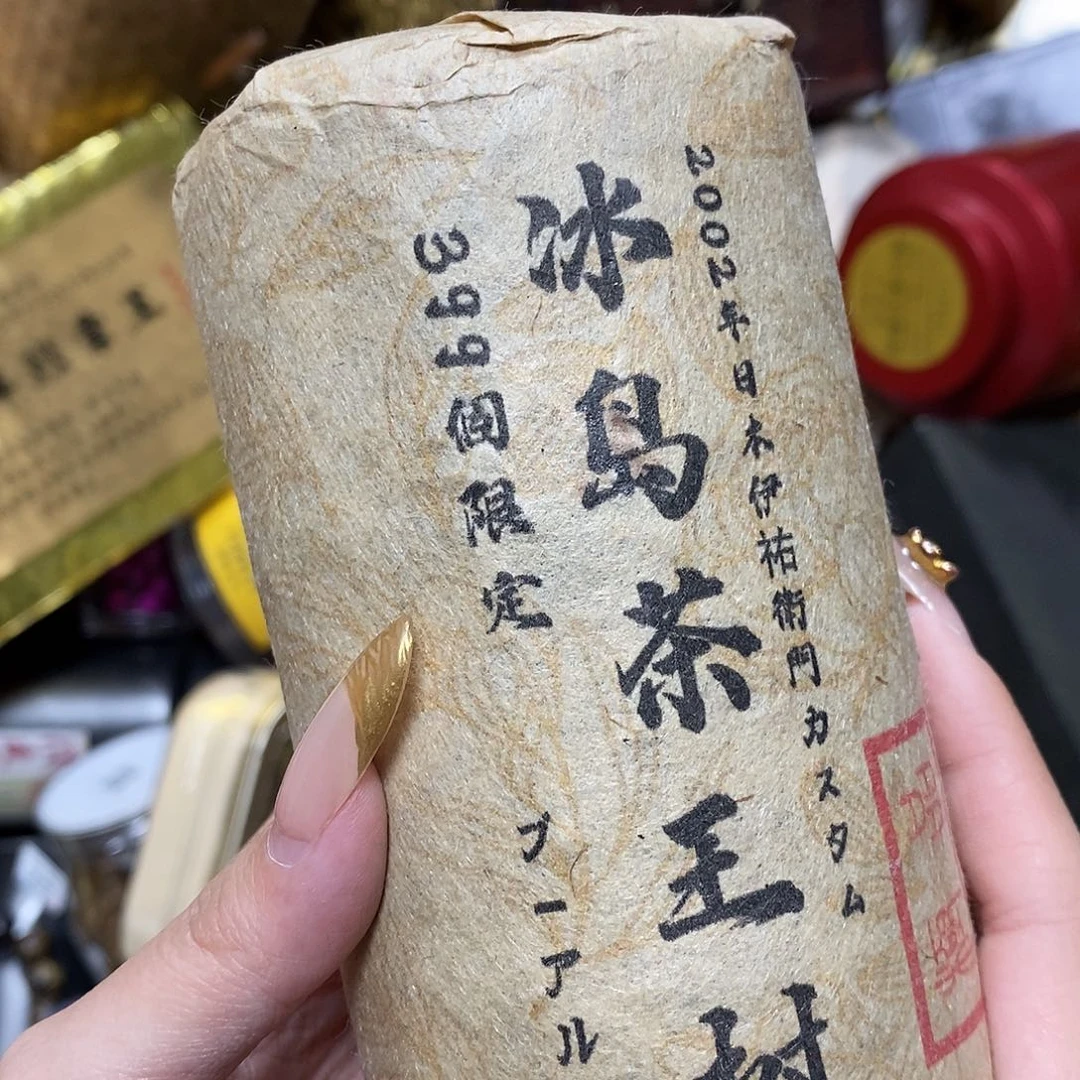 2002年日本伊祐衛門カスタム
冰島茶王树
399個限定
プーアル